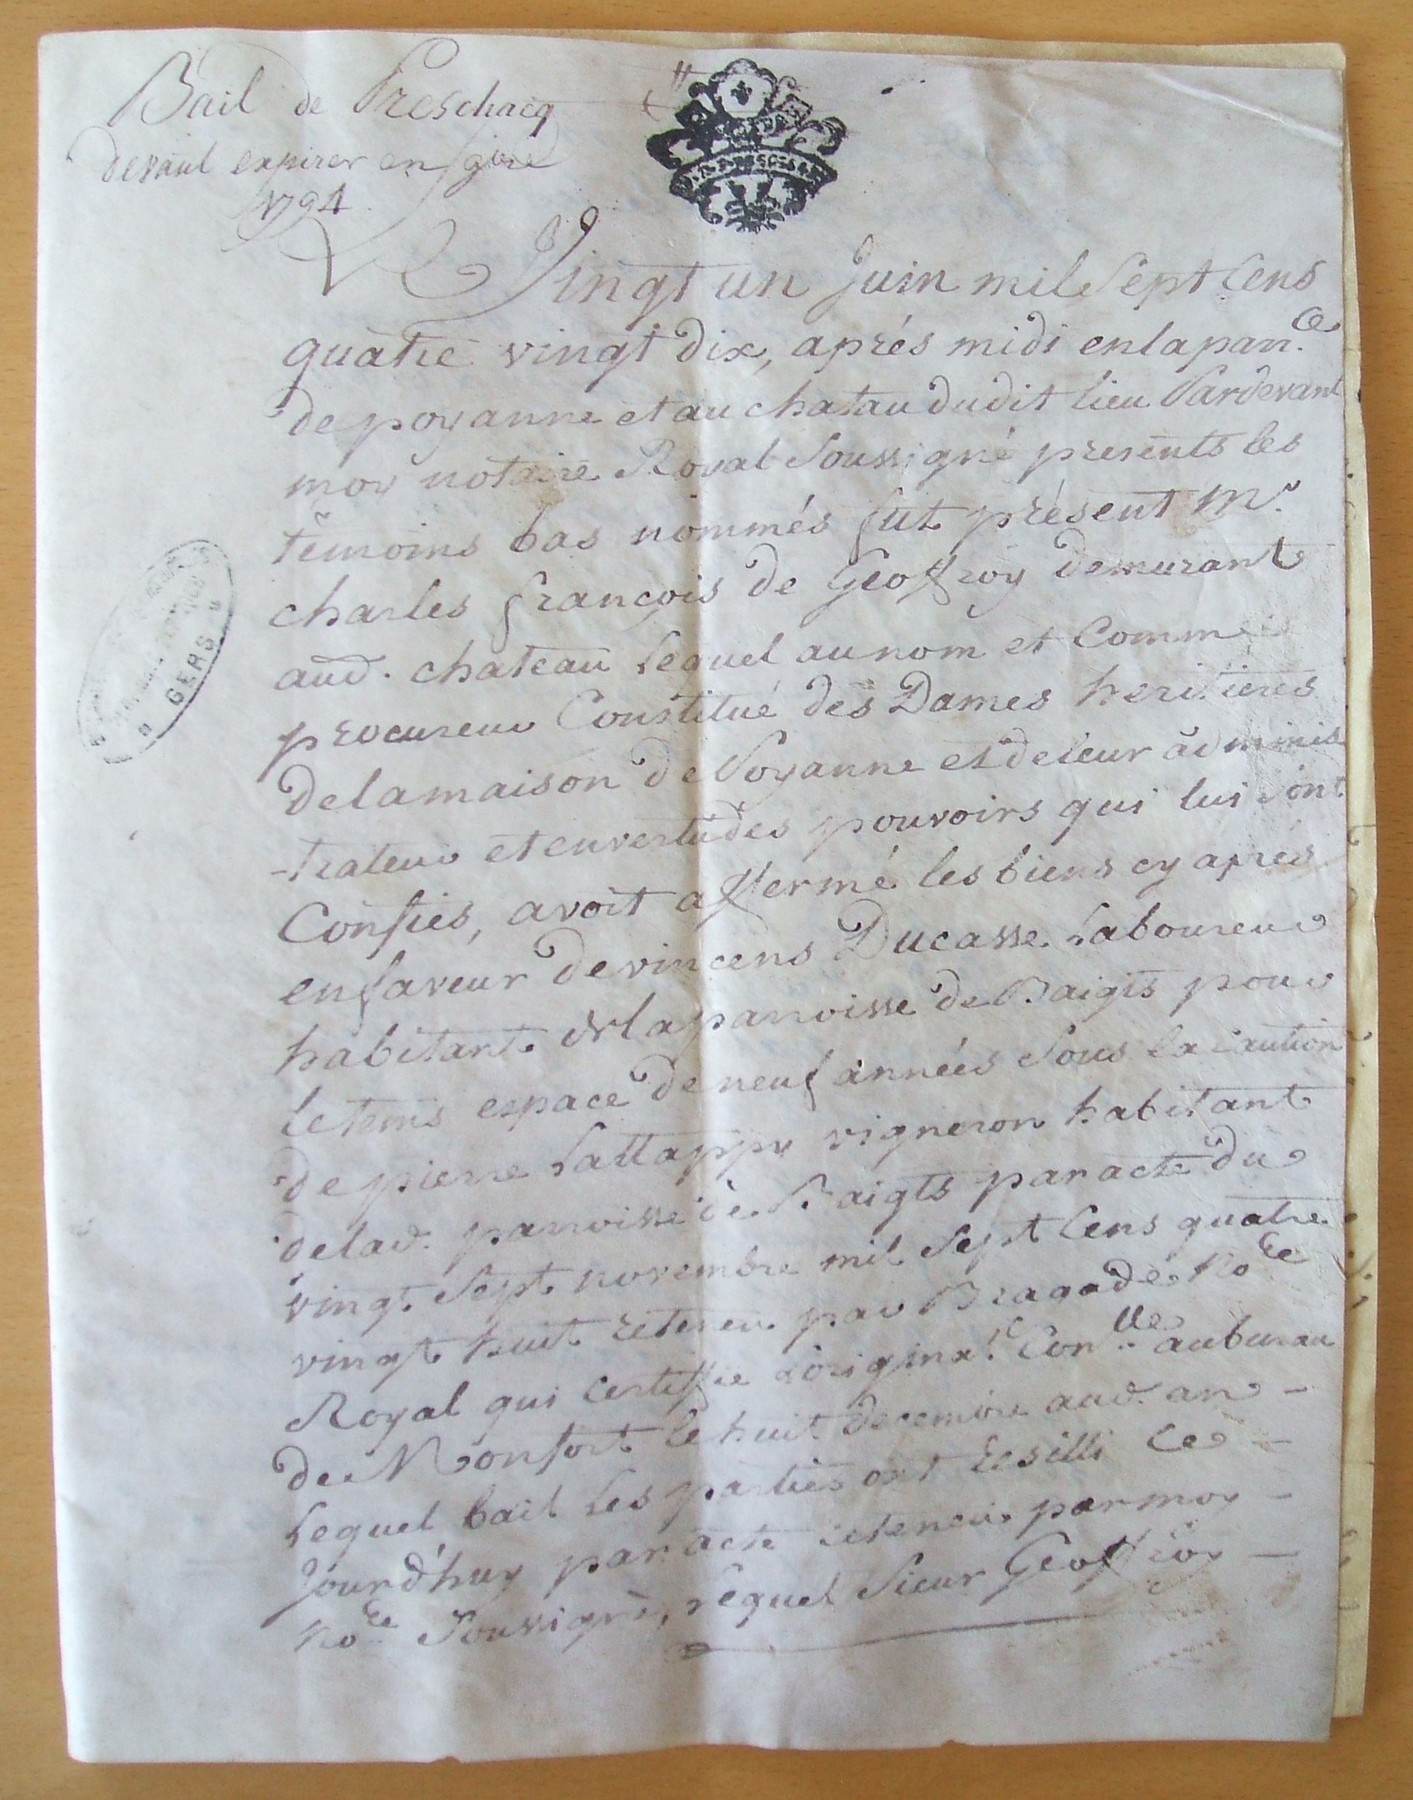 Bail de Preschacq
devant expirer en 9bre
1794
Vingt un Juin mil Sept Cens
quatre vingt dix, aprés midi en la parr.ce
de poyanne et au chatau dudit lieu Pardevant
moy notaire Royal Soussigné presents les
témoins bas nommés fut présent Mr.
charles françois de Geoffroy demurant
aud. chateau Lequel au nom et Comme
procureur Constitué des Dames heritieres
de la maison de Poyanne et de leur adminis
-trateur et en vertu des pouvoirs qui lui sont
Confiés, avoit affermé les biens cy aprés
en faveur de vincens Ducasse Laboureur
habitant de la parroisse de Baigts pour
le tems espace de neuf années sous la caution
de pierre Lattappy vigneron habitant
de lad. parroisse de Baigts par acte du
vingt Sept novembre mil Sept Cens quatre
vingt huit retenu par Bragade No.re
Royal qui certiffie L'origina.l Con.lle au bureau
de Monfort le huit decembre aud. an -
Lequel bail Les parties ont Resilli Ce -
Jourd'huy par acte retenu par moy -
No.re Soussigné, Lequel Sieur Geoffroy -
GERS